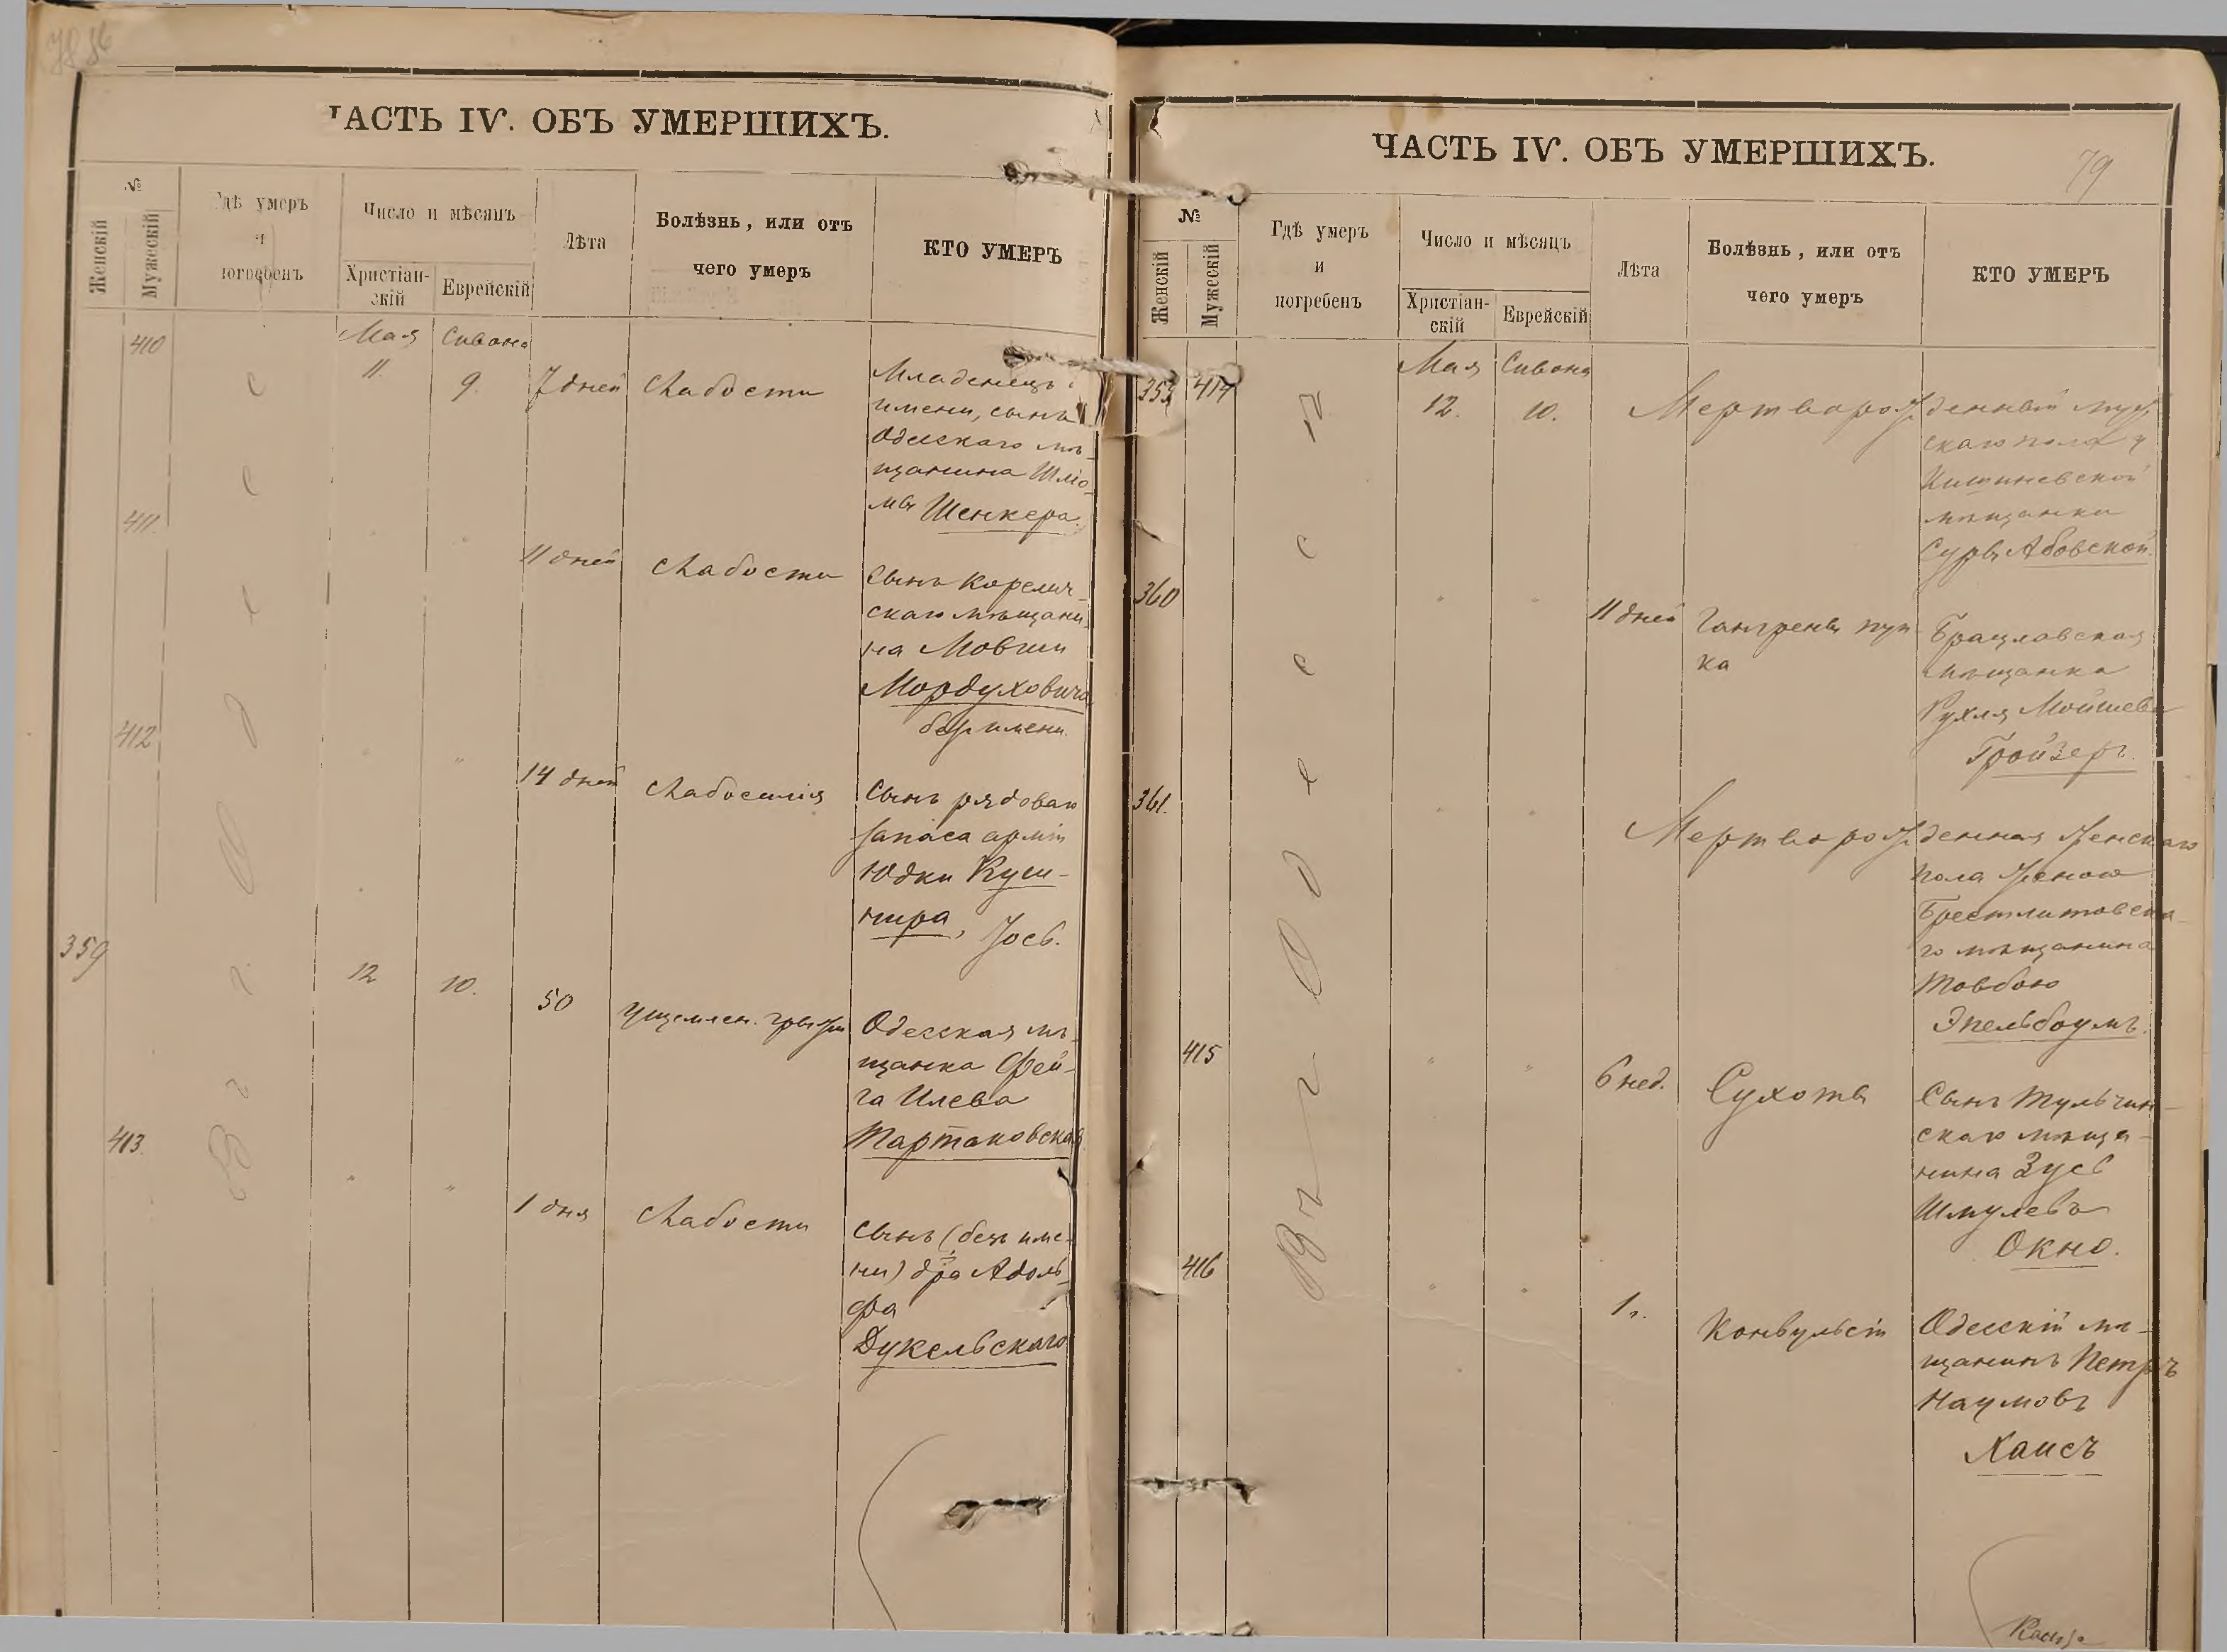 ЧАСТЬ IV. ОБЪ УМЕРШИХЪ.
№
Женскій
Мужескій
Гдѣ умеръ
и
погребенъ
Число и мѣсяцъ
Христіан-
скій
Еврейскій
Лѣта
Болѣзнь, или отъ
чего умеръ
КТО УМЕРЪ
Въ Одессе
Мая Сивона
410
11. 9. 7 дней Слабости
Младенецъ
имени, сынъ
Одесскаго мѣ-
щанина Шлio-
мы Шенкера.
411.
11 дней Слабости
Сынъ Корелич-
скаго мѣщани-
на Мовши
Мордуховича
безъ имени.
412
14 дней Слабосилія
Сынъ рядоваго
запаса арміи
Юдки Куш-
нира, Іось.
359
12 10. 50 Ущемлен. грыжи
Одесская мѣ-
щанка Фей-
га Илева
Тартаковская
413.
1 дня Слабости
Сынъ (безъ име-
ни) д-ра Адоль-
фа
Дукельскаго
ЧАСТЬ IV. ОБЪ УМЕРШИХЪ.
79
№
Женскій
Мужескій
Гдѣ умеръ
и
погребенъ
Число и мѣсяцъ
Христіан-
скій
Еврейскій
Лѣта
Болѣзнь, или отъ
чего умеръ
КТО УМЕРЪ
Въ Одессе
Мая Сивона
414
12. 10. Мертворожденный муж
скаго пола
Кишиневской
мѣщанки
Суры Абовской.
360
11 дней Гангрены пуп-
ка
Брацлавская
мѣщанка
Рухля Мойшева
Гройзеръ.
361.
Мертворожденная женскаго
пола женою
Брестлитовска-
го мѣщанина
Товбою
Эпельбоумъ.
415
6 нед. Сухоты
Сынъ Тульчин-
скаго мѣща-
нина Зусь
Шмулевъ
Окно.
416
1 г. Конвульсіи
Одесскій мѣ-
щанинъ Петръ
Наумовъ
Хаисъ